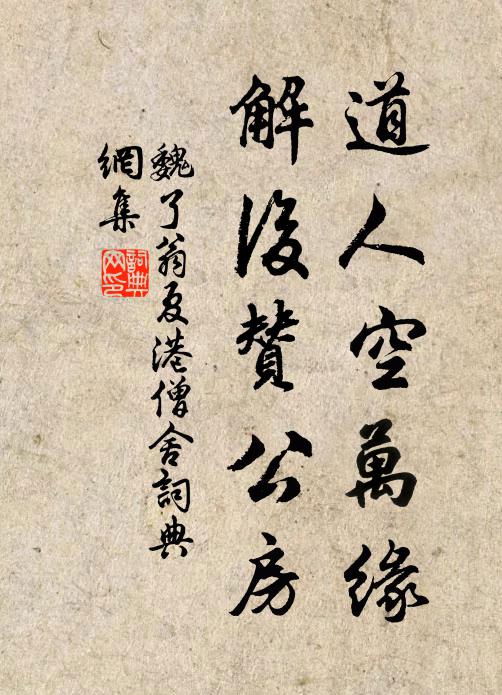 道人空萬緣
解後贊公房
魏了翁夏港僧舍詞典
網集
詞典
网印